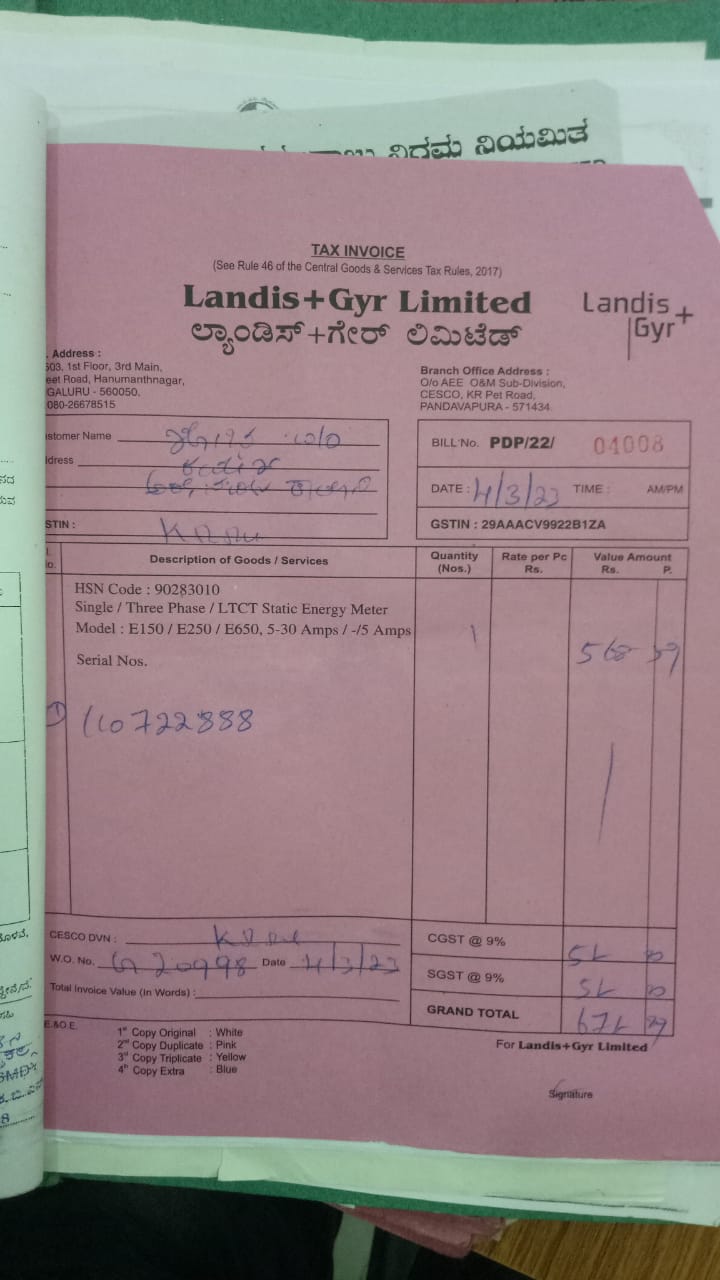 ನಿಗಮ ನಿಯಮಿತ
TAX INVOICE
(See Rule 46 of the Central Goods & Services Tax Rules, 2017)
Landis+Gyr Limited
ಲ್ಯಾಂಡಿಸ್+ಗೇರ್ ಲಿಮಿಟೆಡ್
Landis+
Gyr
Address :
503, 1st Floor, 3rd Main,
eet Road, Hanumanthnagar,
GALURU - 560050,
080-26678515
Branch Office Address :
O/o AEE O&M Sub-Division,
CESCO, KR Pet Road,
PANDAVAPURA - 571434
ustomer Name
ddress
STIN :
BILL No. PDP/22/ 04008
DATE : 4/3/23 TIME : AM/PM
GSTIN : 29AAACV9922B1ZA
Description of Goods / Services
Quantity (Nos.)
Rate per Pc Rs.
Value Amount Rs. P.
HSN Code : 90283010
Single / Three Phase / LTCT Static Energy Meter
Model : E150 / E250 / E650, 5-30 Amps / -/5 Amps 1
Serial Nos.
① 110722888
CESCO DVN :
W.O. No. 20998 Date 4/3/23
Total Invoice Value (In Words) :
CGST @ 9%
SGST @ 9%
GRAND TOTAL
E.&O.E.
1st Copy Original : White
2nd Copy Duplicate : Pink
3rd Copy Triplicate : Yellow
4th Copy Extra : Blue
For Landis+Gyr Limited
Signature